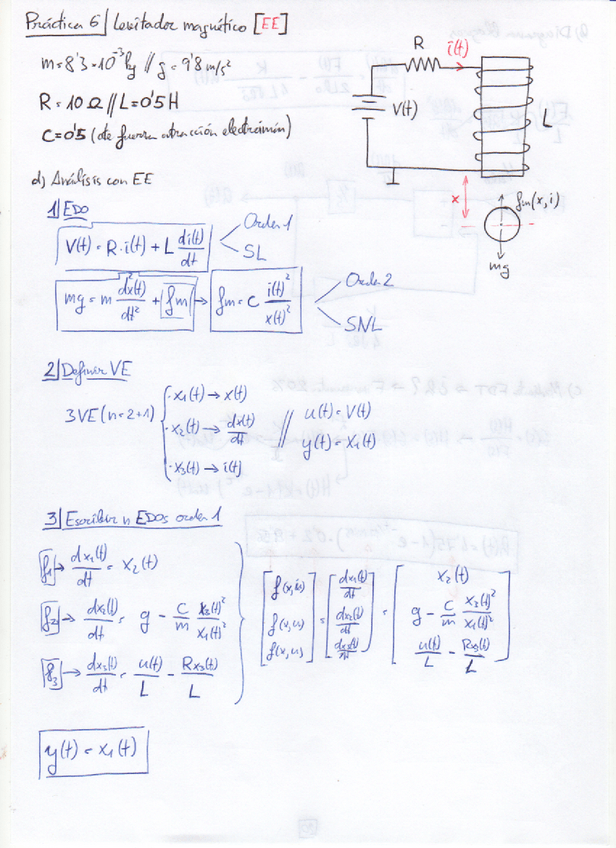 Práctica 6 / Levitador magnético [EE]
m = 8'3·10⁻³ kg // g = 9'8 m/s²
R = 10 Ω // L = 0'5 H
C = 0'5 (cte fuerza atracción electroimán)
R i(t)
V(t)
L
x
fm(x,i)
mg
d) Análisis con EE
1) EDO
V(t) = R·i(t) + L di(t)/dt
Orden 1
SL
mg = m d²x(t)/dt² + fm → fm = C i(t)²/x(t)²
Orden 2
SNL
2) Definir VE
3 VE (n = 2+1)
· x₁(t) → x(t)
· x₂(t) → dx(t)/dt
· x₃(t) → i(t)
// u(t) = V(t)
y(t) = x₁(t)
3) Escribir n EDOs orden 1
f₁ → dx₁(t)/dt = x₂(t)
f₂ → dx₂(t)/dt = g - C/m x₃(t)²/x₁(t)²
f₃ → dx₃(t)/dt = u(t)/L - Rx₃(t)/L
[f(x,u) f(x,u) f(x,u)] = [dx₁(t)/dt dx₂(t)/dt dx₃(t)/dt] = [x₂(t) g - C/m x₃(t)²/x₁(t)² u(t)/L - Rx₃(t)/L]
y(t) = x₁(t)